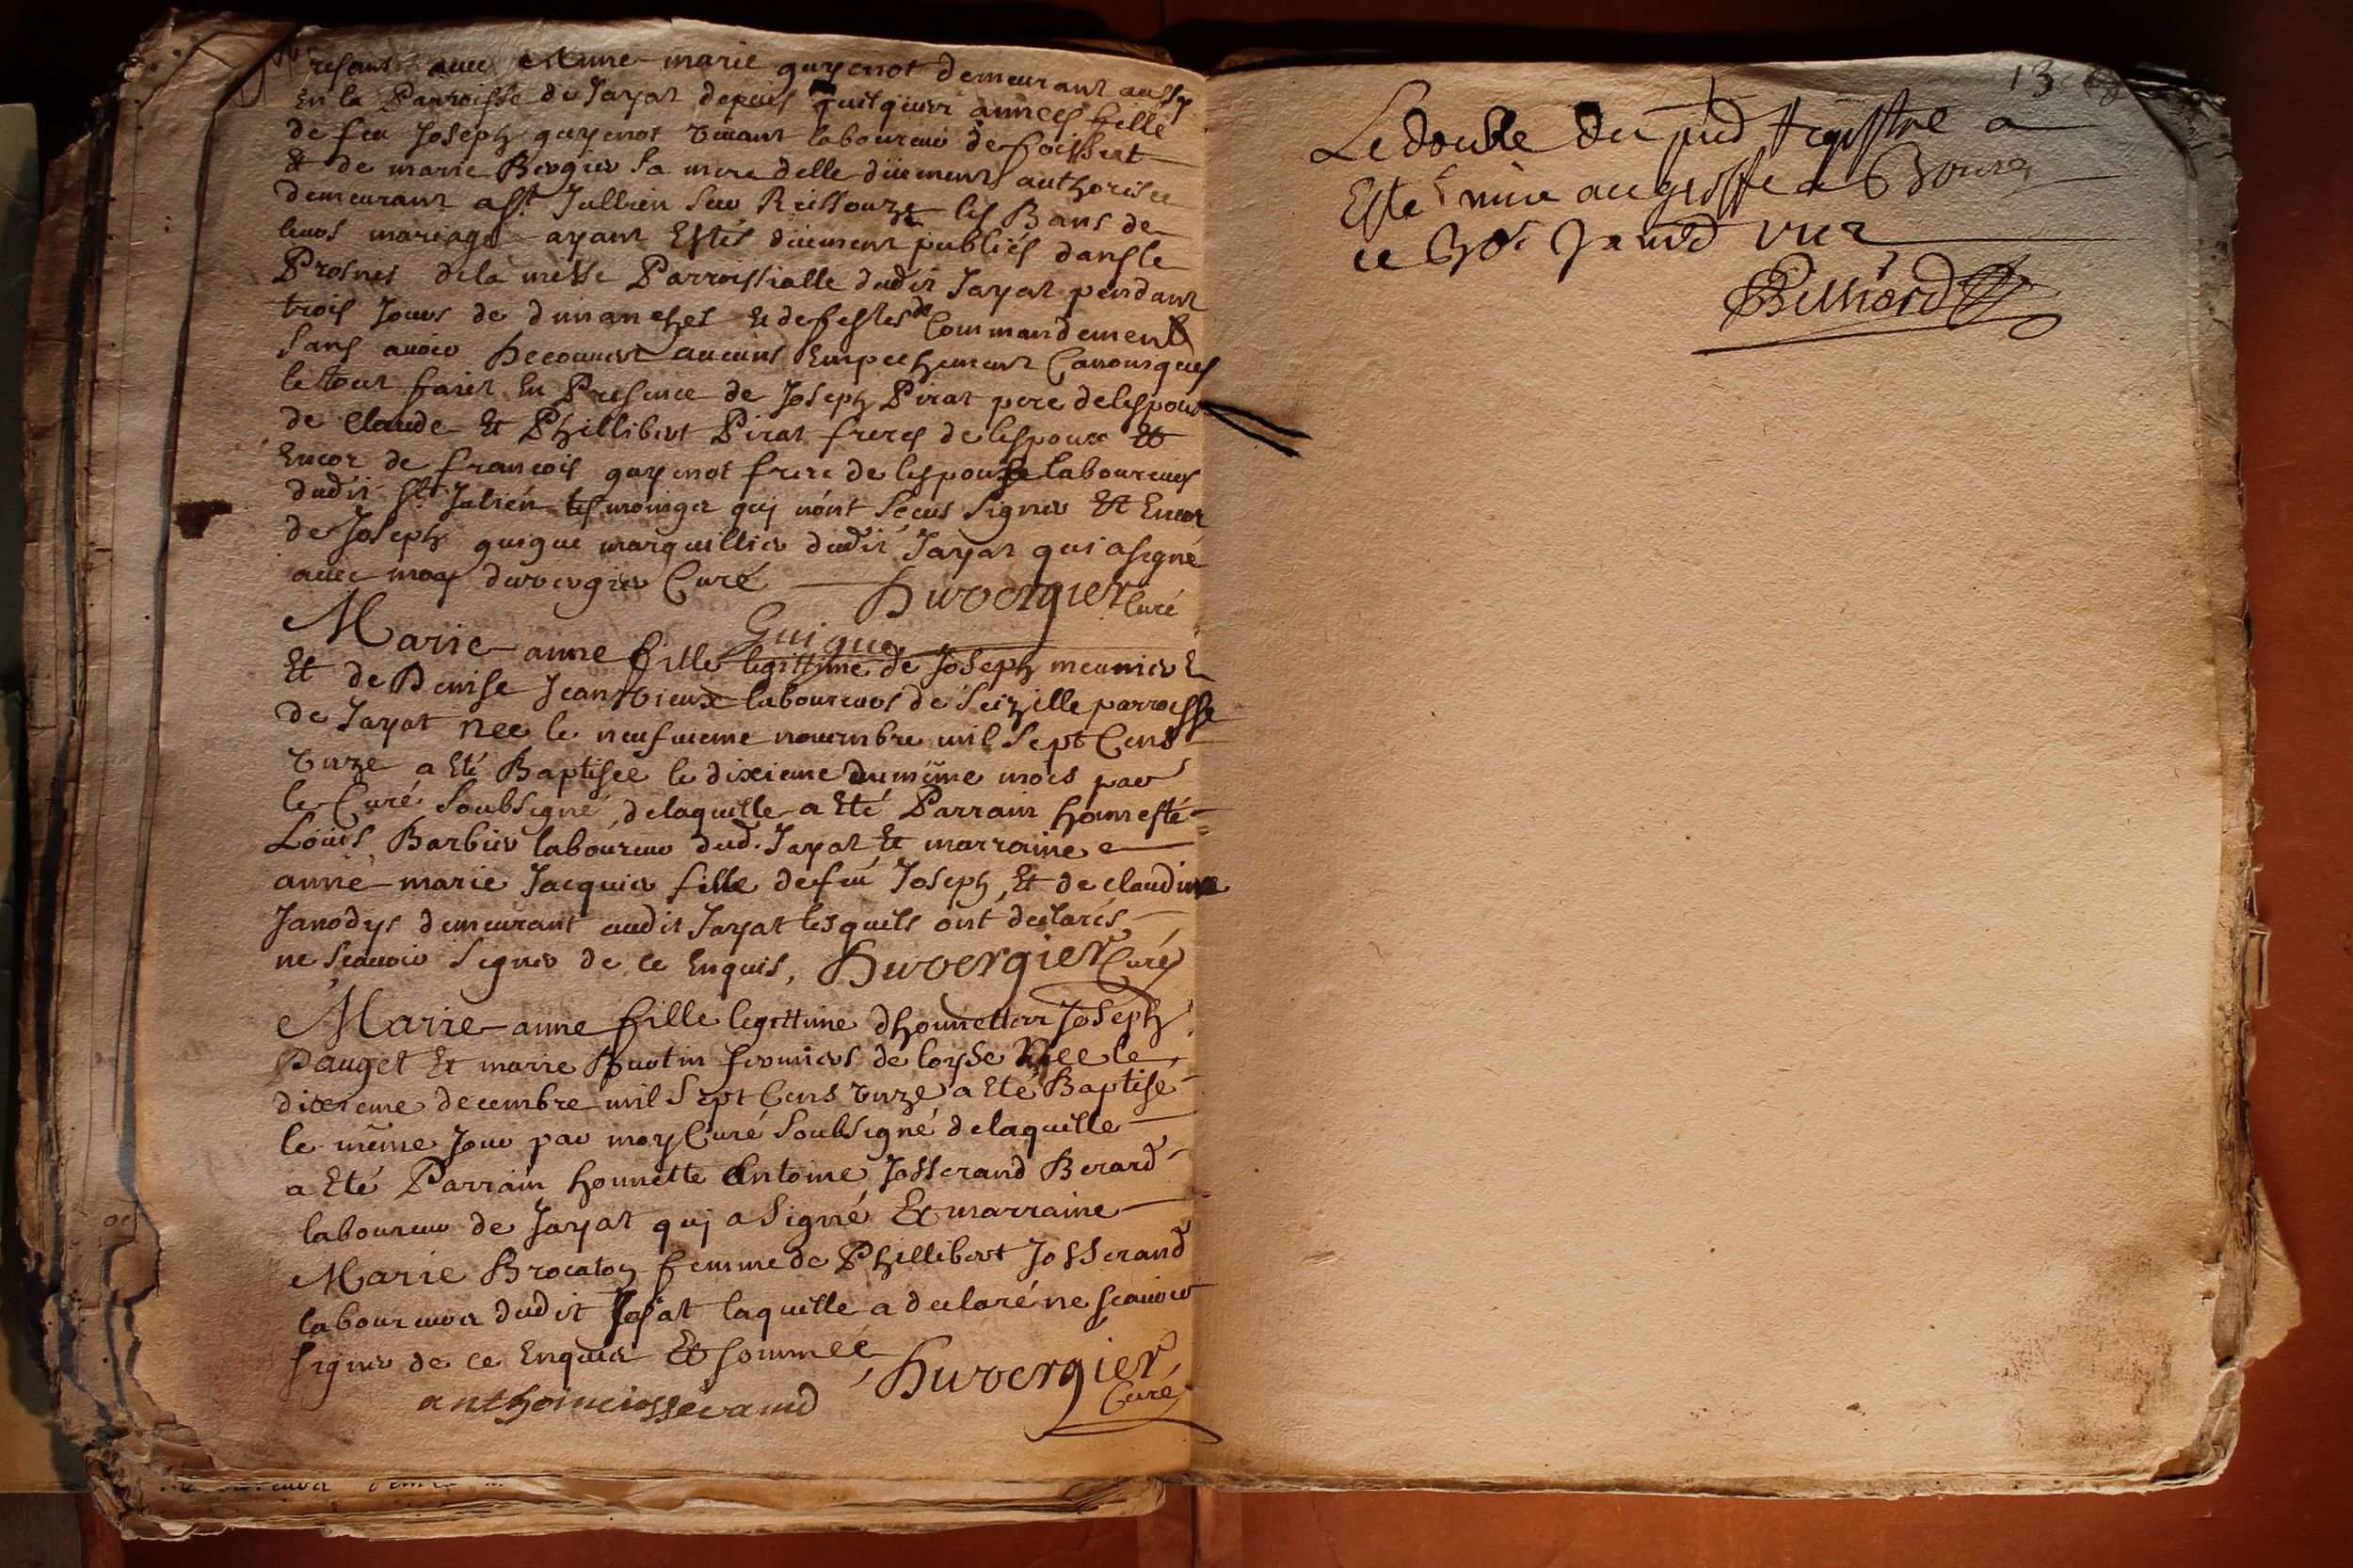 avec Anne marie guyenot demeurant aussy
En la Parroisse de Jayat depuis quelques années fille
de feu Joseph guyenot vivant laboureur de foissiat
& de marie Bergier sa mere delle düement authorisee
demeurant a St Jullien sur Reissouze les Bans de
leurs mariage ayant Estés düement publiés dans le
Prosnes de la messe Parroissialle dudit Jayat pendant
trois Jours de dimanches Et de festes de Commandement
sans avoir decouvert aucuns Empechement Canoniques
le tout fait En Presence de Joseph Pirat pere de lespoux
de Claude Et Phillibert Pirat freres de lespoux Et
Encor de francois guyenot frere de lespouse laboureurs
dudit St Julien tesmoings qui n'ont sceus signer Et Encor
de Joseph guigue marguillier dudit Jayat qui a signé
avec moy duvergier Curé Duvergier Curé
Guigue
Marie anne fille legittime de Joseph meunier
Et de Denise Jeanvieux laboureurs de Seizille parroisse
de Jayat née le neufvieme novembre mil Sept Cens
onze a Eté Baptisee le dixieme du même mois par
le Curé Soubsigné, de laquelle a Eté Parrain honneste
Louis Barbier laboureur dud. Jayat Et marraine
anne marie Jacquier fille de feu Joseph, Et de claudine
Janodys demeurant audit Jayat lesquels ont declarés
ne sçauoir signer de ce Enquis, Duvergier Curé
Marie anne fille legittime d'honnettes Joseph
Dauget Et marie Buatin fermiers de loyse Née le
dixieme decembre mil Sept Cens onze a Eté Baptisé
le même Jour par moy Curé Soubsigné de laquelle
a Eté Parrain honnette Antoine Josserand Berard
laboureur de Jayat qui a Signé Et marraine
Marie Brocaton femme de Phillibert Josserand
laboureur dudit Jayat laquelle a declaré ne sçauoir
signer de ce Enquise Et sommée
Duvergier
Curé
anthoine iosserand
13
Le double du pnt Registre a
Esté mise au greffe de Bourg
ce Janv 1712
Billiard